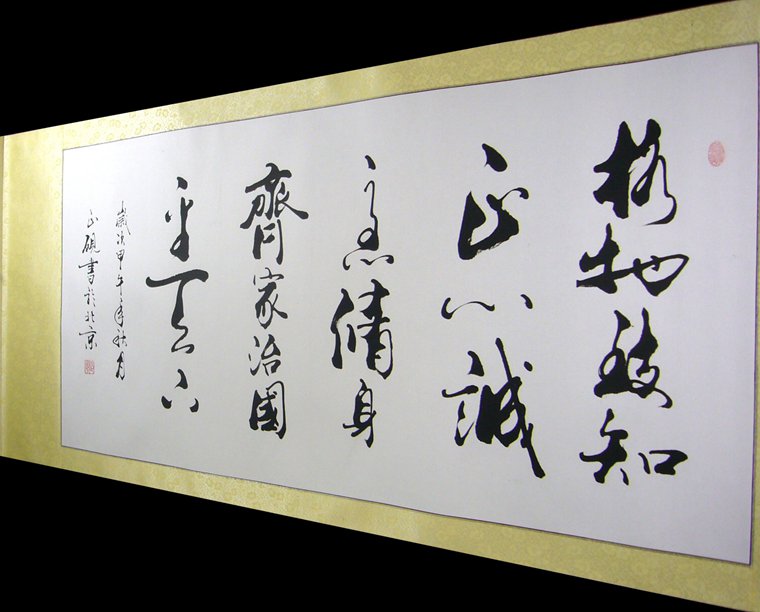 格物致知
正心誠
意脩身
齊家治國
平天下
歲次甲午年秋月
正硯書於北京